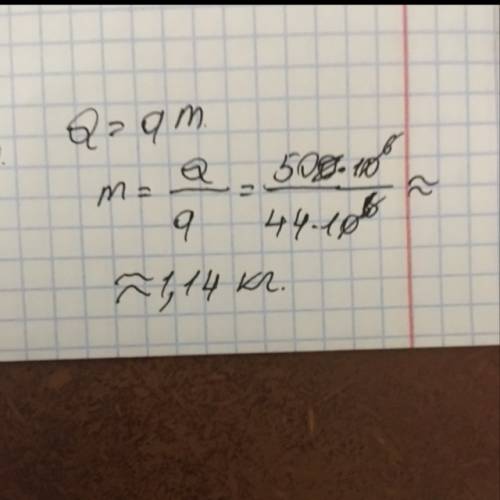 Q = qm.
m = Q/q = 500·10⁶/44·10⁶ ≈
≈ 1,14 кг.